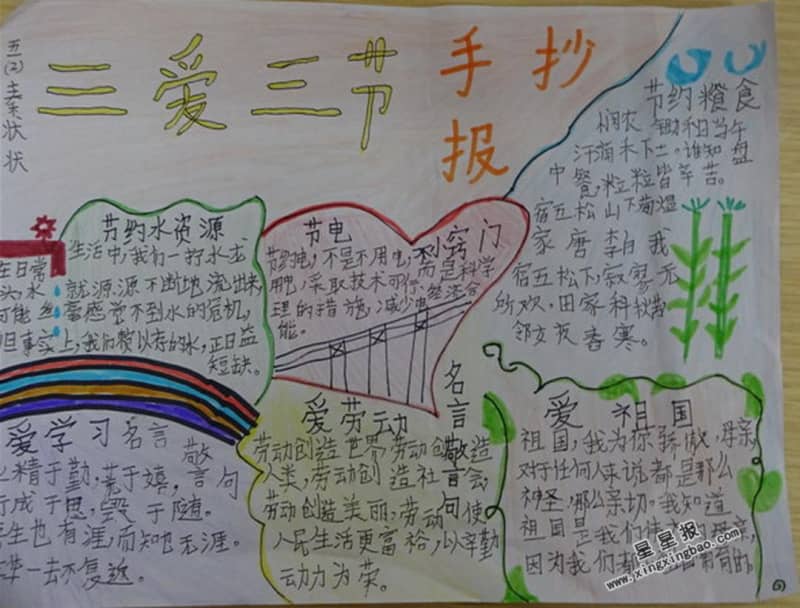 五(2)
三爱三节
手抄报
节约粮食
悯农 锄禾日当午
汗滴禾下土。谁知盘
中餐,粒粒皆辛苦。
宿五松山下荀媪
家 唐 李白 我
宿五松下,寂寥无
所欢。田家秋
邻女夜舂寒。
节约水资源
生活中,我们一拧水龙
在日常
头,水就源源不断地流出来,
可能丝毫感觉不到水的危机,
但事实上,我们赖以存的水,正日益
短缺。
节电小窍门
节约电,不是不用电,而是科学
用电,采取技术可行、
理的措施,减少电
能。
爱学习名言警句
业精于勤,荒于嬉,
行成于思,毁于随。
生也有涯,而知也无涯。
一去不复返。
爱劳动
名言警句
劳动创造世界,劳动创造
人类,劳动创造社会,
劳动创造美丽,劳动使
人民生活更富裕,以辛勤
动力为荣。
爱祖国
祖国,我为你骄傲,母亲,
对于任何人来说都是那么
神圣,那么亲切。我知道
祖国是我们伟大的母亲,
因为我们都是祖国育的。
星星报
www.xingxingbao.com